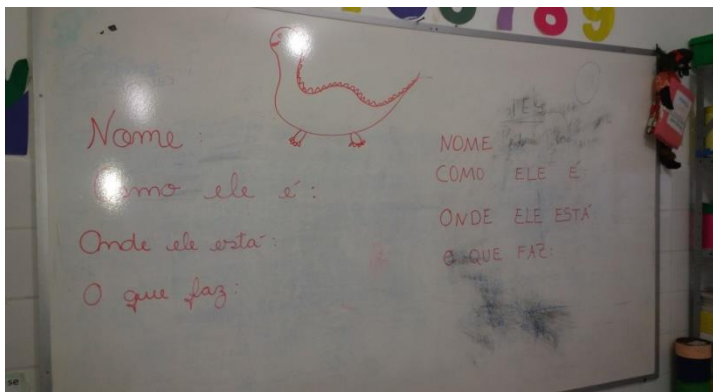 Nome
Como ele é:
Onde ele está:
O que faz:
NOME
COMO ELE É
ONDE ELE ESTÁ
O QUE FAZ:
se